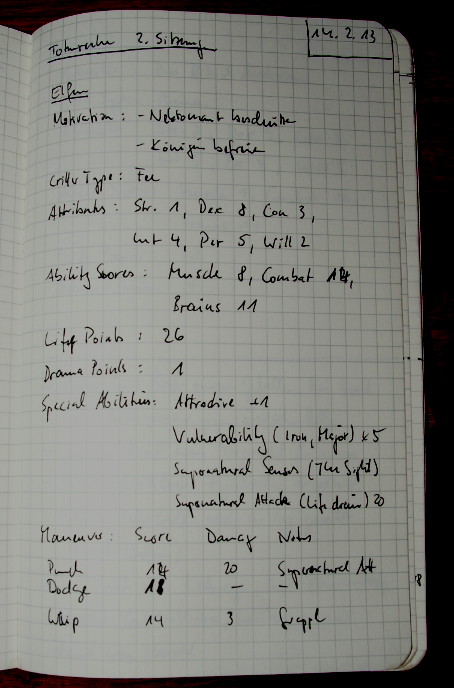 2. Sitzung
14.2.13
Elfen
Motivation: - Nekromant
- Königin befreien
Critter Type: Fee
Attributes: Str. 1, Dex 8, Con 3,
Int 4, Per 5, Will 2
Ability Scores: Muscle 8, Combat 14,
Brains 11
Life Points: 26
Drama Points: 1
Special Abilities: Attractive +1
Vulnerability (Iron, Major) x5
Supernatural Senses (The Sight)
Supernatural Attack (Life drain) 20
Maneuver: Score Damage Notes
Punch 14 20 Supernatural Att
Dodge 18 — —
Whip 14 3 Grapple